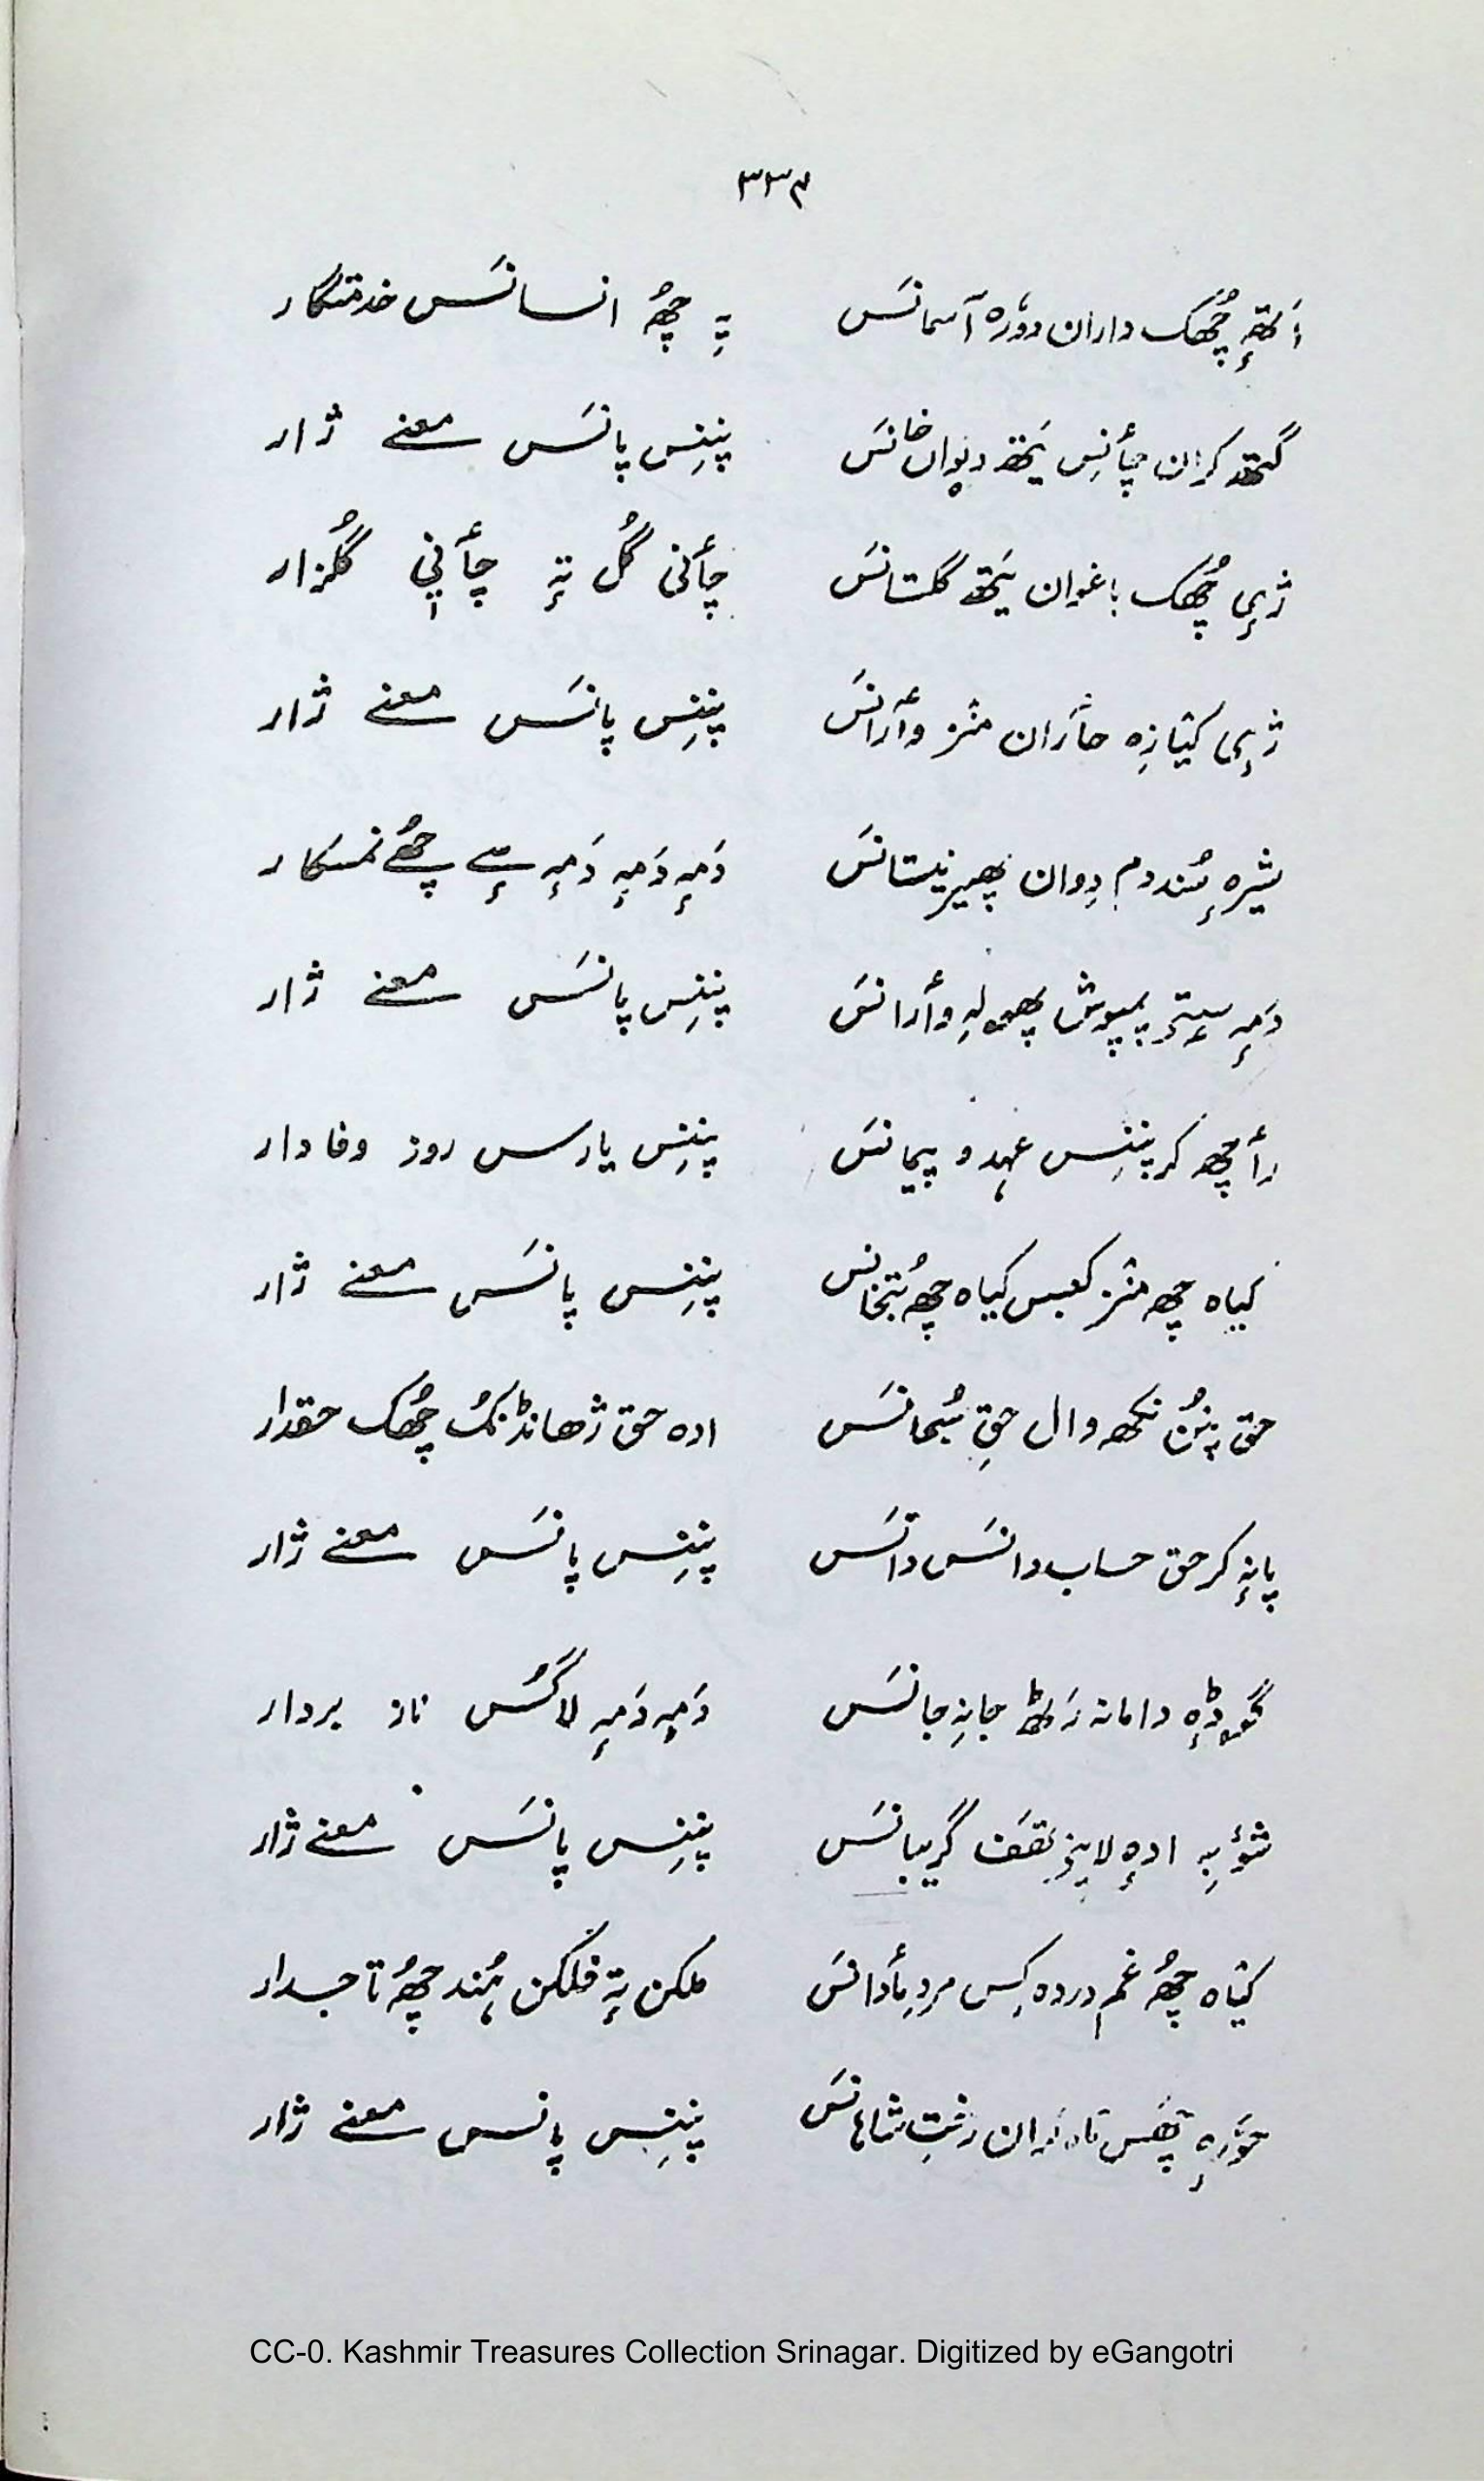 ۳۳۴
أتھۍ چُھکھ داران دورٕہ آسمانَس یہِ چُھ انسانَس خدمتگار
گتھ کران چأنِس یَتھ دیوان خانَس پننِس پانَس معنے ژار
ژٕی چُھک باغوان یَتھ گلستانَس چأنی گُل تہٕ چأنی گُلزار
ژٕی کیٛازِہ حأران منٛز وأرانَس پننِس پانَس معنے ژار
شیرہ سُند دم دِوان پھیر نیستانَس دَمہٕ دَمہٕ دَمہٕ سٕے چُھے نمسکار
دَمہٕ سٟتۍ پمپوش پھولہِ وأرانَس پننِس پانَس معنے ژار
رأچھ کر پننِس عہد و پیمانَس پننِس یارس روز وفادار
کیاہ چھ منٛز کعبس کیاہ چُھ بُتخانس پننِس پانَس معنے ژار
حق پنُن نکھ وال حقِ سُبحانَس ادہ حق ژھانڈنُک چُھک حقدار
پانہٕ کر حق حساب دانَس دانَس پننِس پانَس معنے ژار
گوڈٕہ دامانہ رَٹھ جانِہ جانَس دَمہٕ دَمہٕ لاگُس ناز بردار
شوٗبہِ ادہٕ لاینۍ تقف گریبانَس پننِس پانَس معنے ژار
کیٛاہ چُھ غم دردہ کِس مردِ مأدانَس ملکن تہٕ فلکن ہُند چُھ تاجدار
رختِ شاہانَس پننِس پانس معنے ژار
CC-0. Kashmir Treasures Collection Srinagar. Digitized by eGangotri